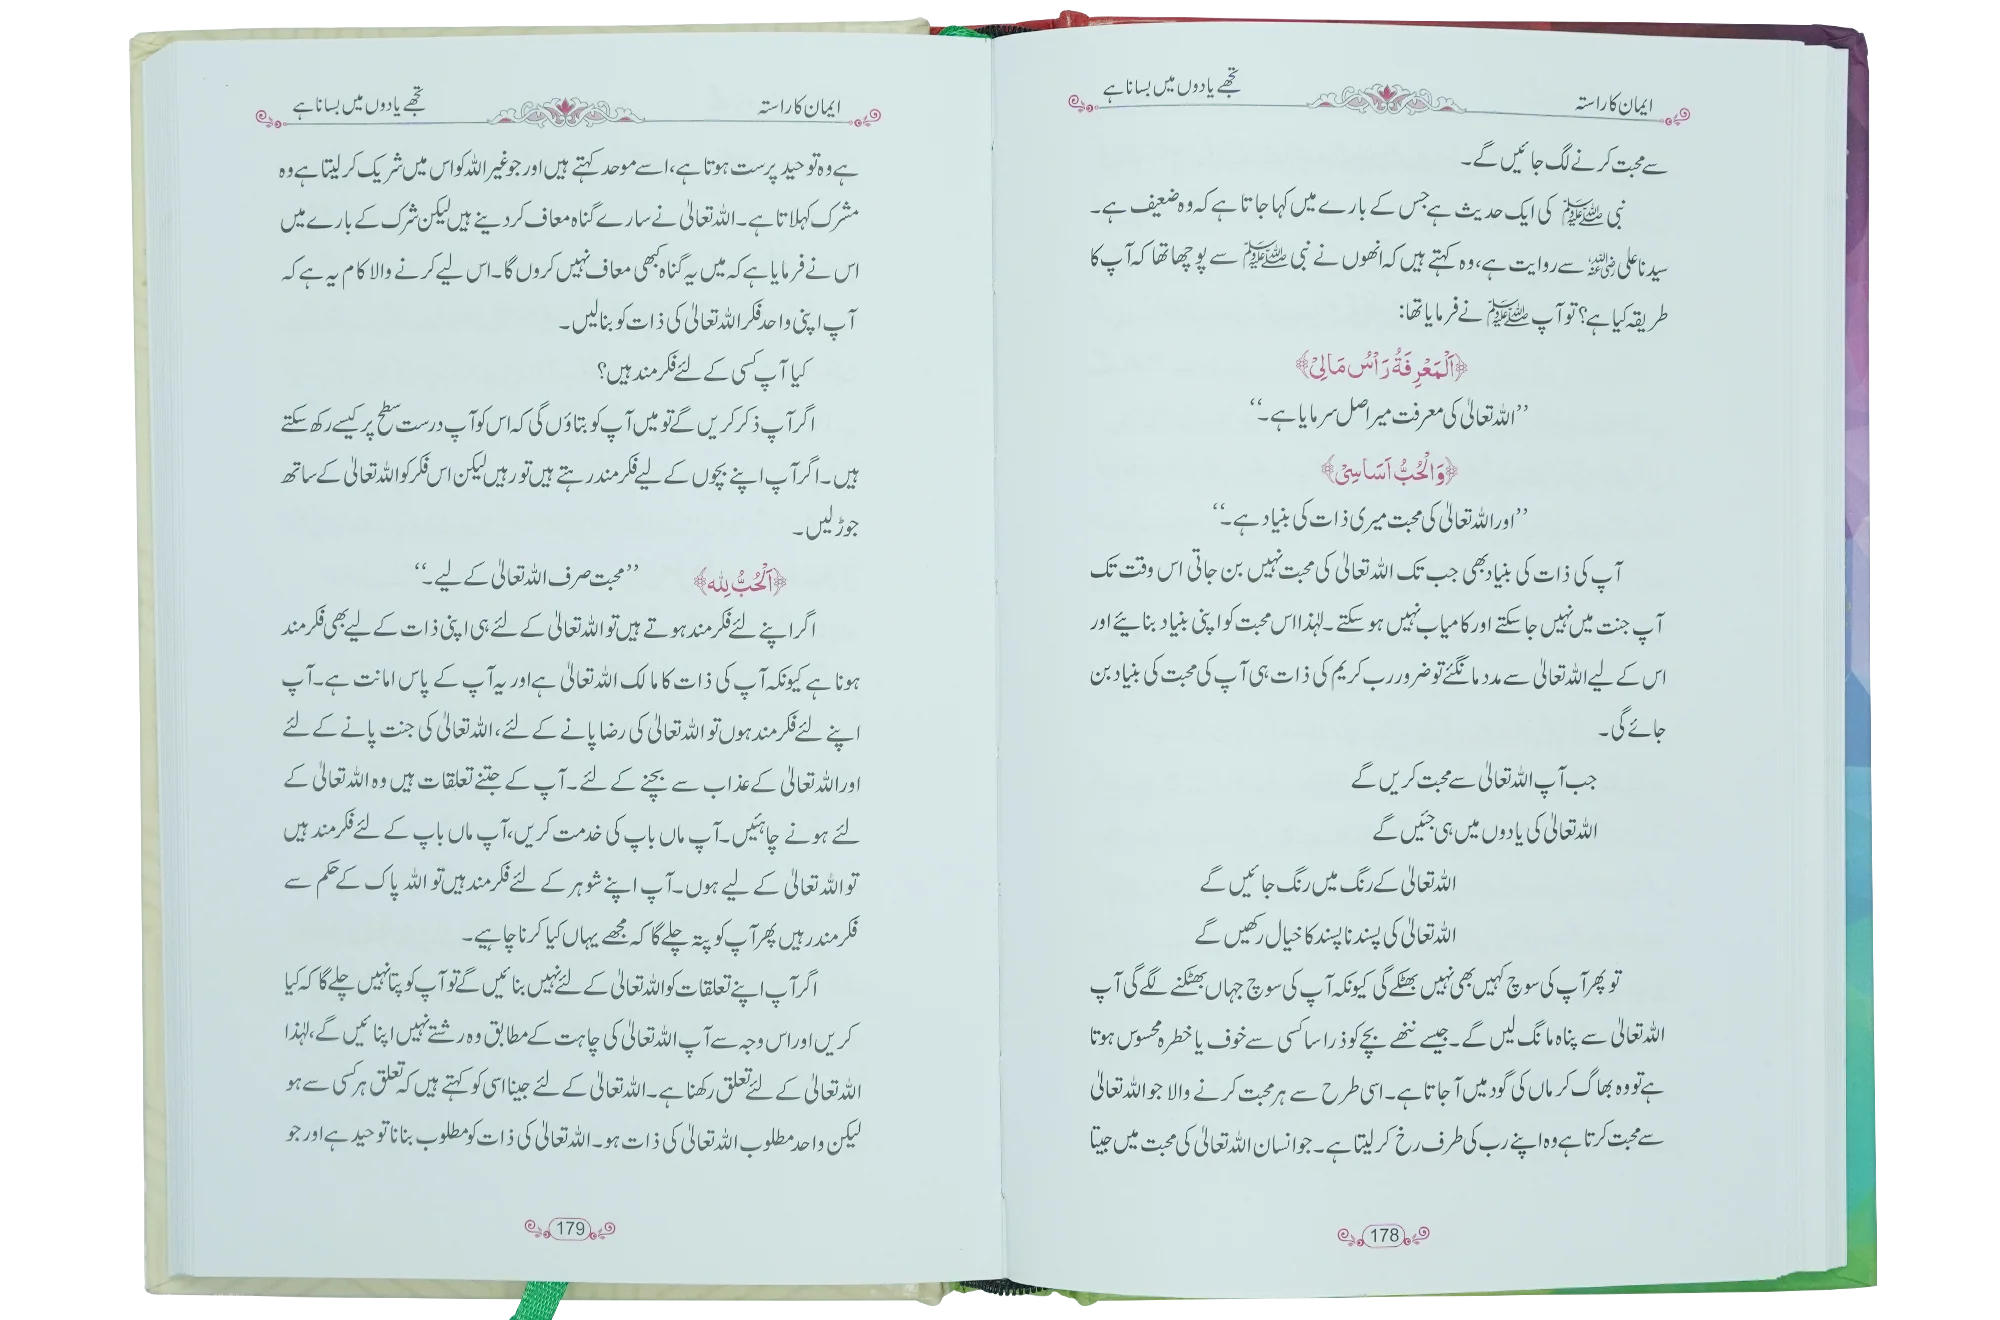 ایمان کا راستہ
تجھے یادوں میں بسانا ہے
سے محبت کرنے لگ جائیں گے۔
نبی ﷺ کی ایک حدیث ہے جس کے بارے میں کہا جاتا ہے کہ وہ ضعیف ہے۔
سیدنا علی رضی اللہ عنہ سے روایت ہے، وہ کہتے ہیں کہ انھوں نے نبی ﷺ سے پوچھا تھا کہ آپ کا
طریقہ کیا ہے؟ تو آپ ﷺ نے فرمایا تھا:
﴿اَلْمَعْرِفَةُ رَاْسُ مَالِیْ﴾
’’اللہ تعالیٰ کی معرفت میرا اصل سرمایا ہے۔‘‘
﴿وَالْحُبُّ اَسَاسِیْ﴾
’’اور اللہ تعالیٰ کی محبت میری ذات کی بنیاد ہے۔‘‘
آپ کی ذات کی بنیاد بھی جب تک اللہ تعالیٰ کی محبت نہیں بن جاتی اس وقت تک
آپ جنت میں نہیں جا سکتے اور کامیاب نہیں ہو سکتے۔ لہٰذا اس محبت کو اپنی بنیاد بنایئے اور
اس کے لیے اللہ تعالیٰ سے مدد مانگئے تو ضرور رب کریم کی ذات ہی آپ کی محبت کی بنیاد بن
جائے گی۔
جب آپ اللہ تعالیٰ سے محبت کریں گے
اللہ تعالیٰ کی یادوں میں ہی جئیں گے
اللہ تعالیٰ کے رنگ میں رنگ جائیں گے
اللہ تعالیٰ کی پسند ناپسند کا خیال رکھیں گے
تو پھر آپ کی سوچ کہیں بھی نہیں بھٹکے گی کیونکہ آپ کی سوچ جہاں بھٹکنے لگے گی آپ
اللہ تعالیٰ سے پناہ مانگ لیں گے۔ جیسے ننھے بچے کو ذرا سا کسی سے خوف یا خطرہ محسوس ہوتا
ہے تو وہ بھاگ کر ماں کی گود میں آ جاتا ہے۔ اسی طرح سے ہر محبت کرنے والا جو اللہ تعالیٰ
سے محبت کرتا ہے وہ اپنے رب کی طرف رخ کر لیتا ہے۔ جو انسان اللہ تعالیٰ کی محبت میں جیتا
178
ایمان کا راستہ
تجھے یادوں میں بسانا ہے
ہے وہ توحید پرست ہوتا ہے، اسے موحد کہتے ہیں اور جو غیر اللہ کو اس میں شریک کر لیتا ہے وہ
مشرک کہلاتا ہے۔ اللہ تعالیٰ نے سارے گناہ معاف کر دینے ہیں لیکن شرک کے بارے میں
اس نے فرمایا ہے کہ میں یہ گناہ کبھی معاف نہیں کروں گا۔ اس لیے کرنے والا کام یہ ہے کہ
آپ اپنی واحد فکر اللہ تعالیٰ کی ذات کو بنا لیں۔
کیا آپ کسی کے لئے فکرمند ہیں؟
اگر آپ ذکر کریں گے تو میں آپ کو بتاؤں گی کہ اس کو آپ درست سطح پر کیسے رکھ سکتے
ہیں۔ اگر آپ اپنے بچوں کے لیے فکرمند رہتے ہیں تو رہیں لیکن اس فکر کو اللہ تعالیٰ کے ساتھ
جوڑ لیں۔
﴿اَلْحُبُّ لِلہ﴾ ’’محبت صرف اللہ تعالیٰ کے لیے۔‘‘
اگر اپنے لئے فکرمند ہوتے ہیں تو اللہ تعالیٰ کے لئے ہی اپنی ذات کے لیے بھی فکرمند
ہونا ہے کیونکہ آپ کی ذات کا مالک اللہ تعالیٰ ہے اور یہ آپ کے پاس امانت ہے۔ آپ
اپنے لئے فکرمند ہوں تو اللہ تعالیٰ کی رضا پانے کے لئے، اللہ تعالیٰ کی جنت پانے کے لئے
اور اللہ تعالیٰ کے عذاب سے بچنے کے لئے۔ آپ کے جتنے تعلقات ہیں وہ اللہ تعالیٰ کے
لئے ہونے چاہئیں۔ آپ ماں باپ کی خدمت کریں، آپ ماں باپ کے لئے فکرمند ہیں
تو اللہ تعالیٰ کے لیے ہوں۔ آپ اپنے شوہر کے لئے فکرمند ہیں تو اللہ پاک کے حکم سے
فکرمند رہیں پھر آپ کو پتہ چلے گا کہ مجھے یہاں کیا کرنا چاہیے۔
اگر آپ اپنے تعلقات کو اللہ تعالیٰ کے لئے نہیں بنائیں گے تو آپ کو پتا نہیں چلے گا کہ کیا
کریں اور اس وجہ سے آپ اللہ تعالیٰ کی چاہت کے مطابق وہ رشتے نہیں اپنائیں گے، لہٰذا
اللہ تعالیٰ کے لئے تعلق رکھنا ہے۔ اللہ تعالیٰ کے لئے جینا اسی کو کہتے ہیں کہ تعلق ہر کسی سے ہو
لیکن واحد مطلوب اللہ تعالیٰ کی ذات ہو۔ اللہ تعالیٰ کی ذات کو مطلوب بنانا توحید ہے اور جو
179